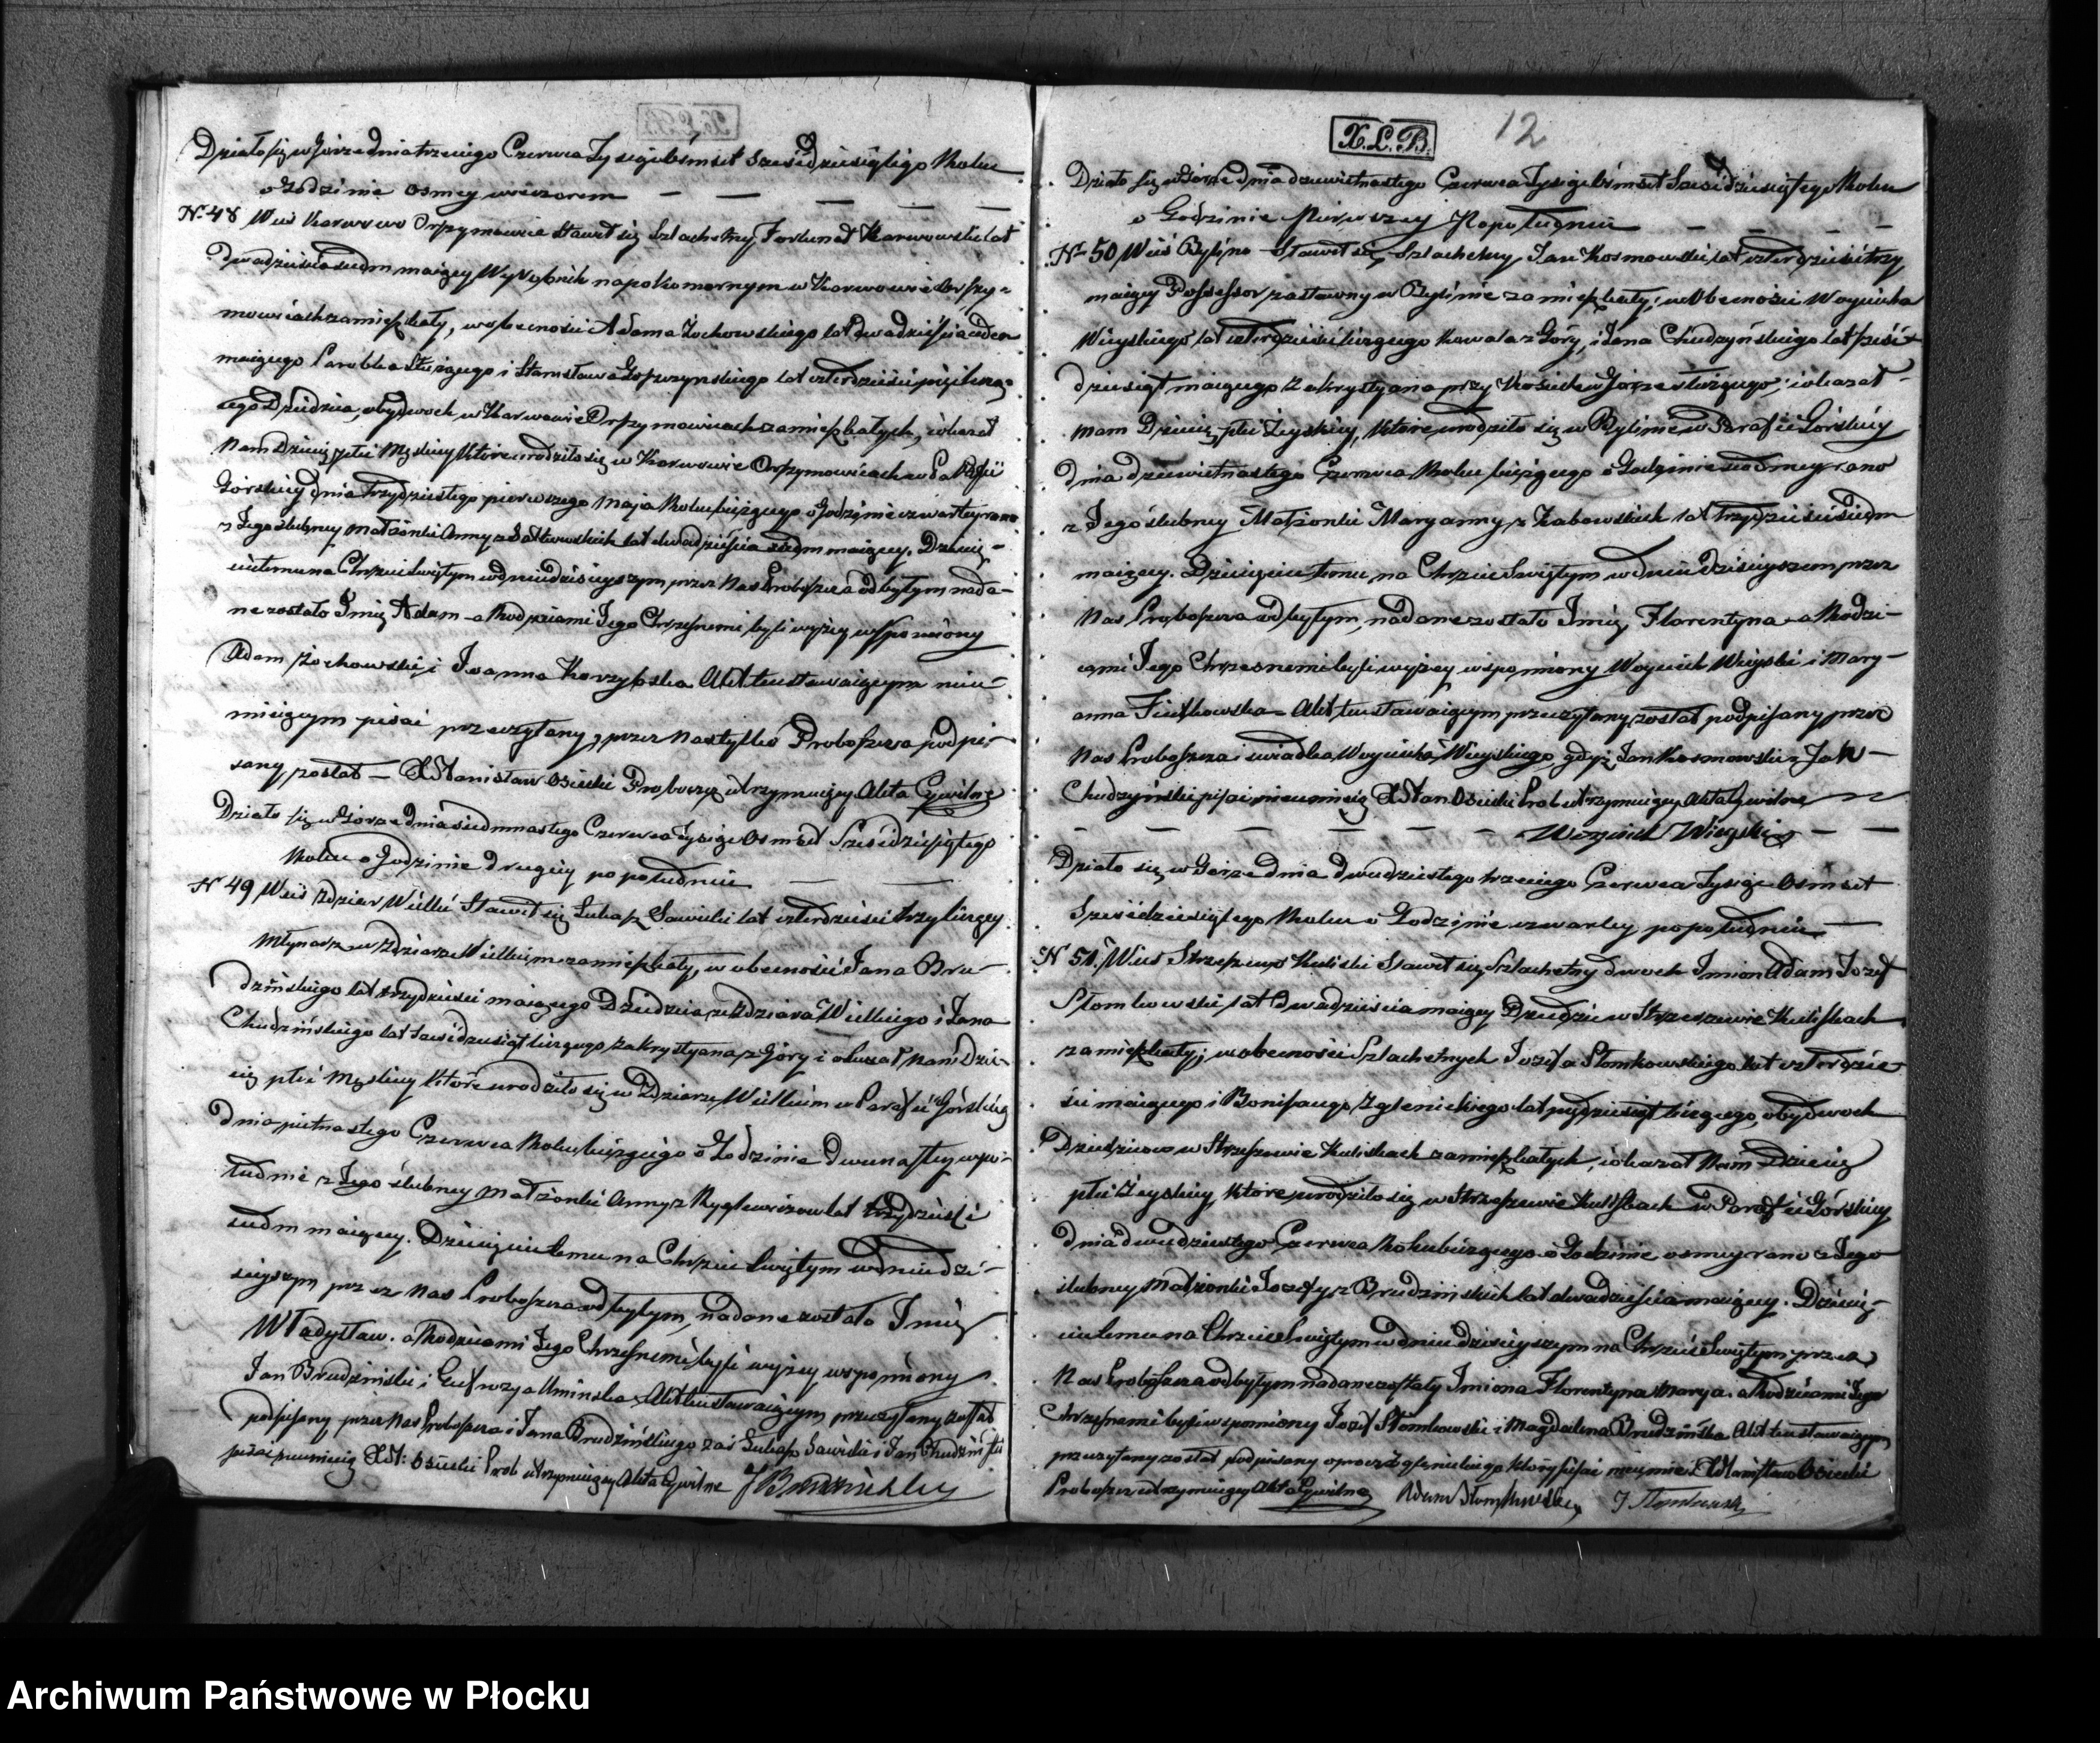 Działo się w Górze dnia trzeciego Czerwca Tysiąc Ośmset Sześćdziesiątego Roku
o Godzinie osmey wieczorem
N. 48 Wieś Karwowo Orszymowice Stawił się Szlachetny Fortunat Karwowski lat
Dwadzieścia siedm maiący Wyrobnik na pokomornym w Karwowie Orszy-
mowicach zamieszkały, w obecności Adama Żochowskiego lat dwadzieścia ieden
maiącego Parobka Służącego i Stanisława lat czterdzieści pięć licza-
cego Dziedzica, obydwoch w Karwowie Orszymowicach zamieszkałych, i okazał
Nam Dziecię płci Męskiey które urodziło się w Karwowie Orszymowicach w Parafii
Górskiey dnia trzydziestego pierwszego Maja Roku bieżącego o Godzinie czwartey rano
z Jego ślubney Małżonki Anny z lat dwadzieścia siedm maiącey. Dziecię-
ciu temu na Chrzcie Świętym w dniu dzisieyszym przez Nas Proboszcza odbytym nada-
ne zostało Imię Adam - a Rodzicami Jego Chrzesnemi byli wyżey wspomniony
Adam Żochowski i Joanna Korzybska Akt ten stawaiącym nieu-
mieiącym pisać przeczytany, przez Nas tylko Proboszcza podpi-
sany został - X Stanisław Osiecki Proboszcz utrzymuiący Akta Cywilne
Działo się w Górze dnia siedmnastego Czerwca Tysiąc Ośmset Sześćdziesiątego
Roku o Godzinie drugiey po południu
N 49 Wieś Zdziar Wielki Stawił się Łukasz Sawicki lat czterdzieści trzy liczący
Młynarz w Zdziarze Wielkim zamieszkały, w obecności Jana Bru-
dzińskiego lat trzydzieści maiącego Dziedzica z Zdziara Wielkiego i Jana
Chudzińskiego lat sześćdziesiąt liczącego Zakrystyana z Góry i okazał Nam Dzie-
cię płci Męskiey które urodziło się w Zdziarze Wielkim w Parafii Górskiey
dnia piętnastego Czerwca Roku bieżącego o Godzinie dwunastey w po-
łudnie z Jego ślubney Małżonki Anny z lat trzydzieści
siedm maiącey. Dziecięciu temu na Chrzcie Świętym w dniu dzi-
sieyszym przez Nas Proboszcza odbytym, nadane zostało Imię
Władysław. a Rodzicami Jego Chrzesnemi byli wyżey wspomniony
Jan Brudziński i Eufrozyna Umińska Akt ten stawaiącym przeczytany został
podpisany przez Nas Proboszcza i Jana Brudzińskiego zaś Łukasz Sawicki i Jan Chudziński
pisać nieumieią X St: Osiecki Prob utrzymuiący Akta Cywilne J Brudziński
X.L.B. 12
Działo się w Górze dnia dziewiętnastego Czerwca Tysiąc Ośmset Sześćdziesiątego Roku
o Godzinie Pierwszey Popołudniu
N 50 Wieś Bylino Stawił się Szlachetny Jan Kosmowski lat czterdzieści trzy
maiący Possessor zastawny w Bylinie zamieszkały, w obecności Woyciecha
Wieyskiego lat czterdzieści liczącego Kowala z Góry, i Jana Chudzyńskiego lat sześć-
dziesiąt maiącego Zakrystyana przy Kościele w Górze służącego; i okazał
Nam Dziecię płci Żeyskiey, które urodziło się w Bylinie w Parafii Górskiey
dnia dziewiętnastego Czerwca Roku bieżącego o Godzinie siódmey rano
z Jego ślubney Małżonki Maryanny z Kabowskich lat trzydzieści siedm
maiącey. Dziecięciu temu na Chrzcie Świętym w dniu dzisieyszem przez
Nas Proboszcza odbytym, nadane zostało Imię Florentyna - a Rodzi-
cami Jego Chrzesnemi byli wyżey wspomniony Woyciech Wieyski i Mary-
anna Fiutkowska - Akt ten stawaiącym przeczytany, został podpisany przez
Nas Proboszcza i świadka Woyciecha Wieyskiego, gdyż Jan Kosmowski i Jan
Chudzyński pisać nieumieią X Stan Osiecki Prob utrzymuiący Akta Cywilne
Woyciech Wieyski
Działo się w Górze dnia dwudziestego trzeciego Czerwca Tysiąc Ośmset
Sześćdziesiątego Roku o Godzinie czwartey popołudniu
N 51. Wieś Strzeszewo Kuliski Stawił się Szlachetny dwoch Imion Adam Jozef
Słomkowski lat Dwadzieścia maiący Dziedzic w Strzeszewie Kuliskach
zamieszkały; w obecności Szlachetnych Jozefa Słomkowskiego lat czterdzie-
ści maiącego i Bonifacego Zglenickiego lat pięćdziesiąt liczącego, obydwoch
Dziedzicow w Strzeszewie Kuliskach zamieszkałych, i okazał Nam Dziecię
płci Żeyskiey, które urodziło się w Strzeszewie Kuliskach w Parafii Górskiey
dnia dwudziestego Czerwca Roku bieżącego o Godzinie osmey rano z Jego
ślubney Małżonki Jozefy z Brudzińskich lat dwadzieścia maiącey. Dziecię-
ciu temu na Chrzcie Świętym w dniu dzisieyszym na Chrzcie Świętym przez
Nas Proboszcza odbytym nadane zostały Imiona Florentyna Marya. a Rodzicami Jego
Chrzesnemi byli wspomniony Jozef Słomkowski i Magdalena Brudzińska Akt ten stawaiącym
przeczytany został podpisany oprocz Zglenickiego który pisać nieumie. X Stanisław Osiecki
Proboszcz utrzymuiący Akta Cywilne Adam Słomkowski J Słomkowski
Archiwum Państwowe w Płocku